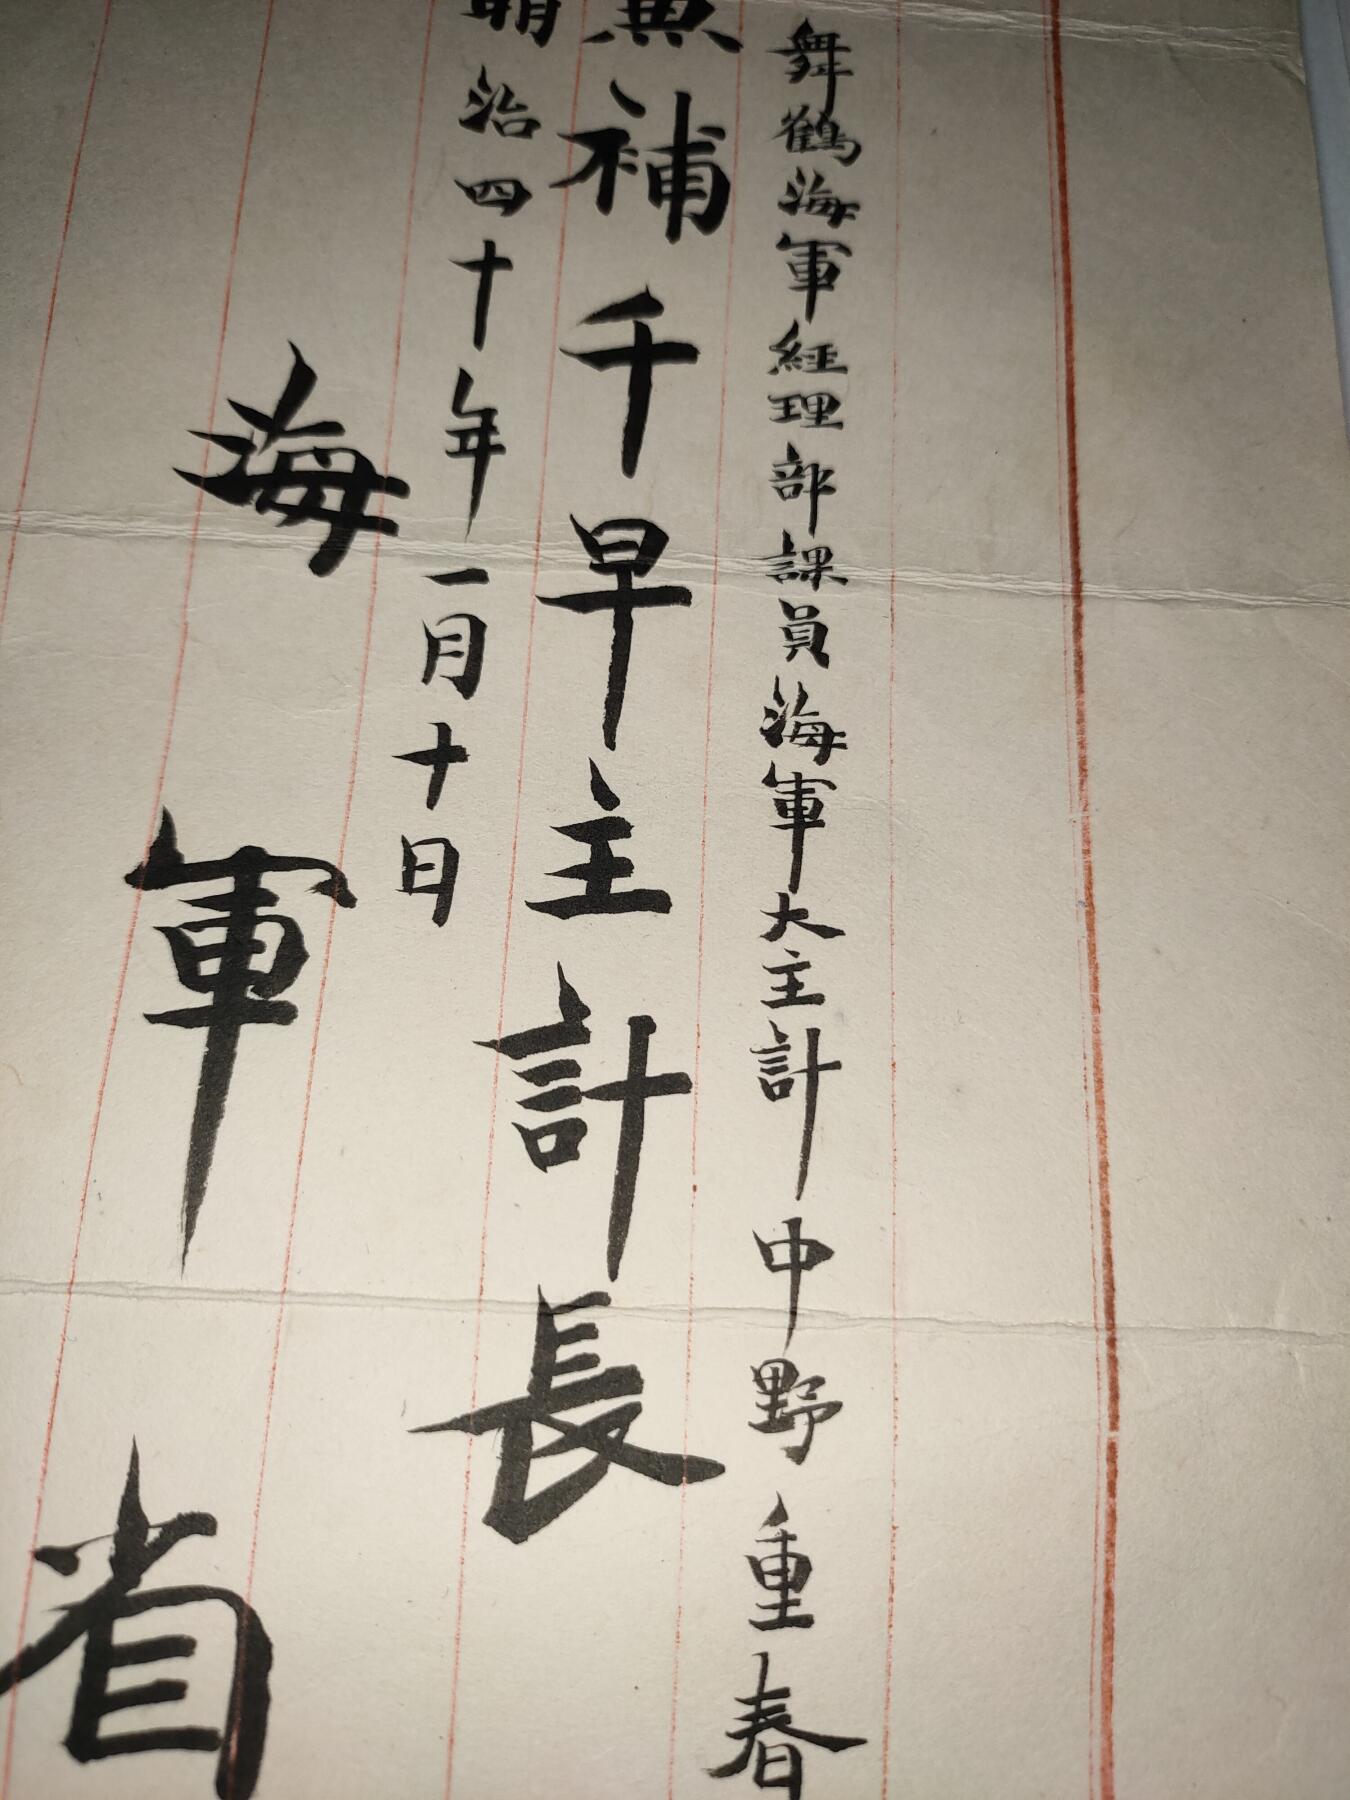 舞鶴海軍經理部課員海軍大主計中野重春
兼補千早主計長
明治四十年一月十日
海軍省